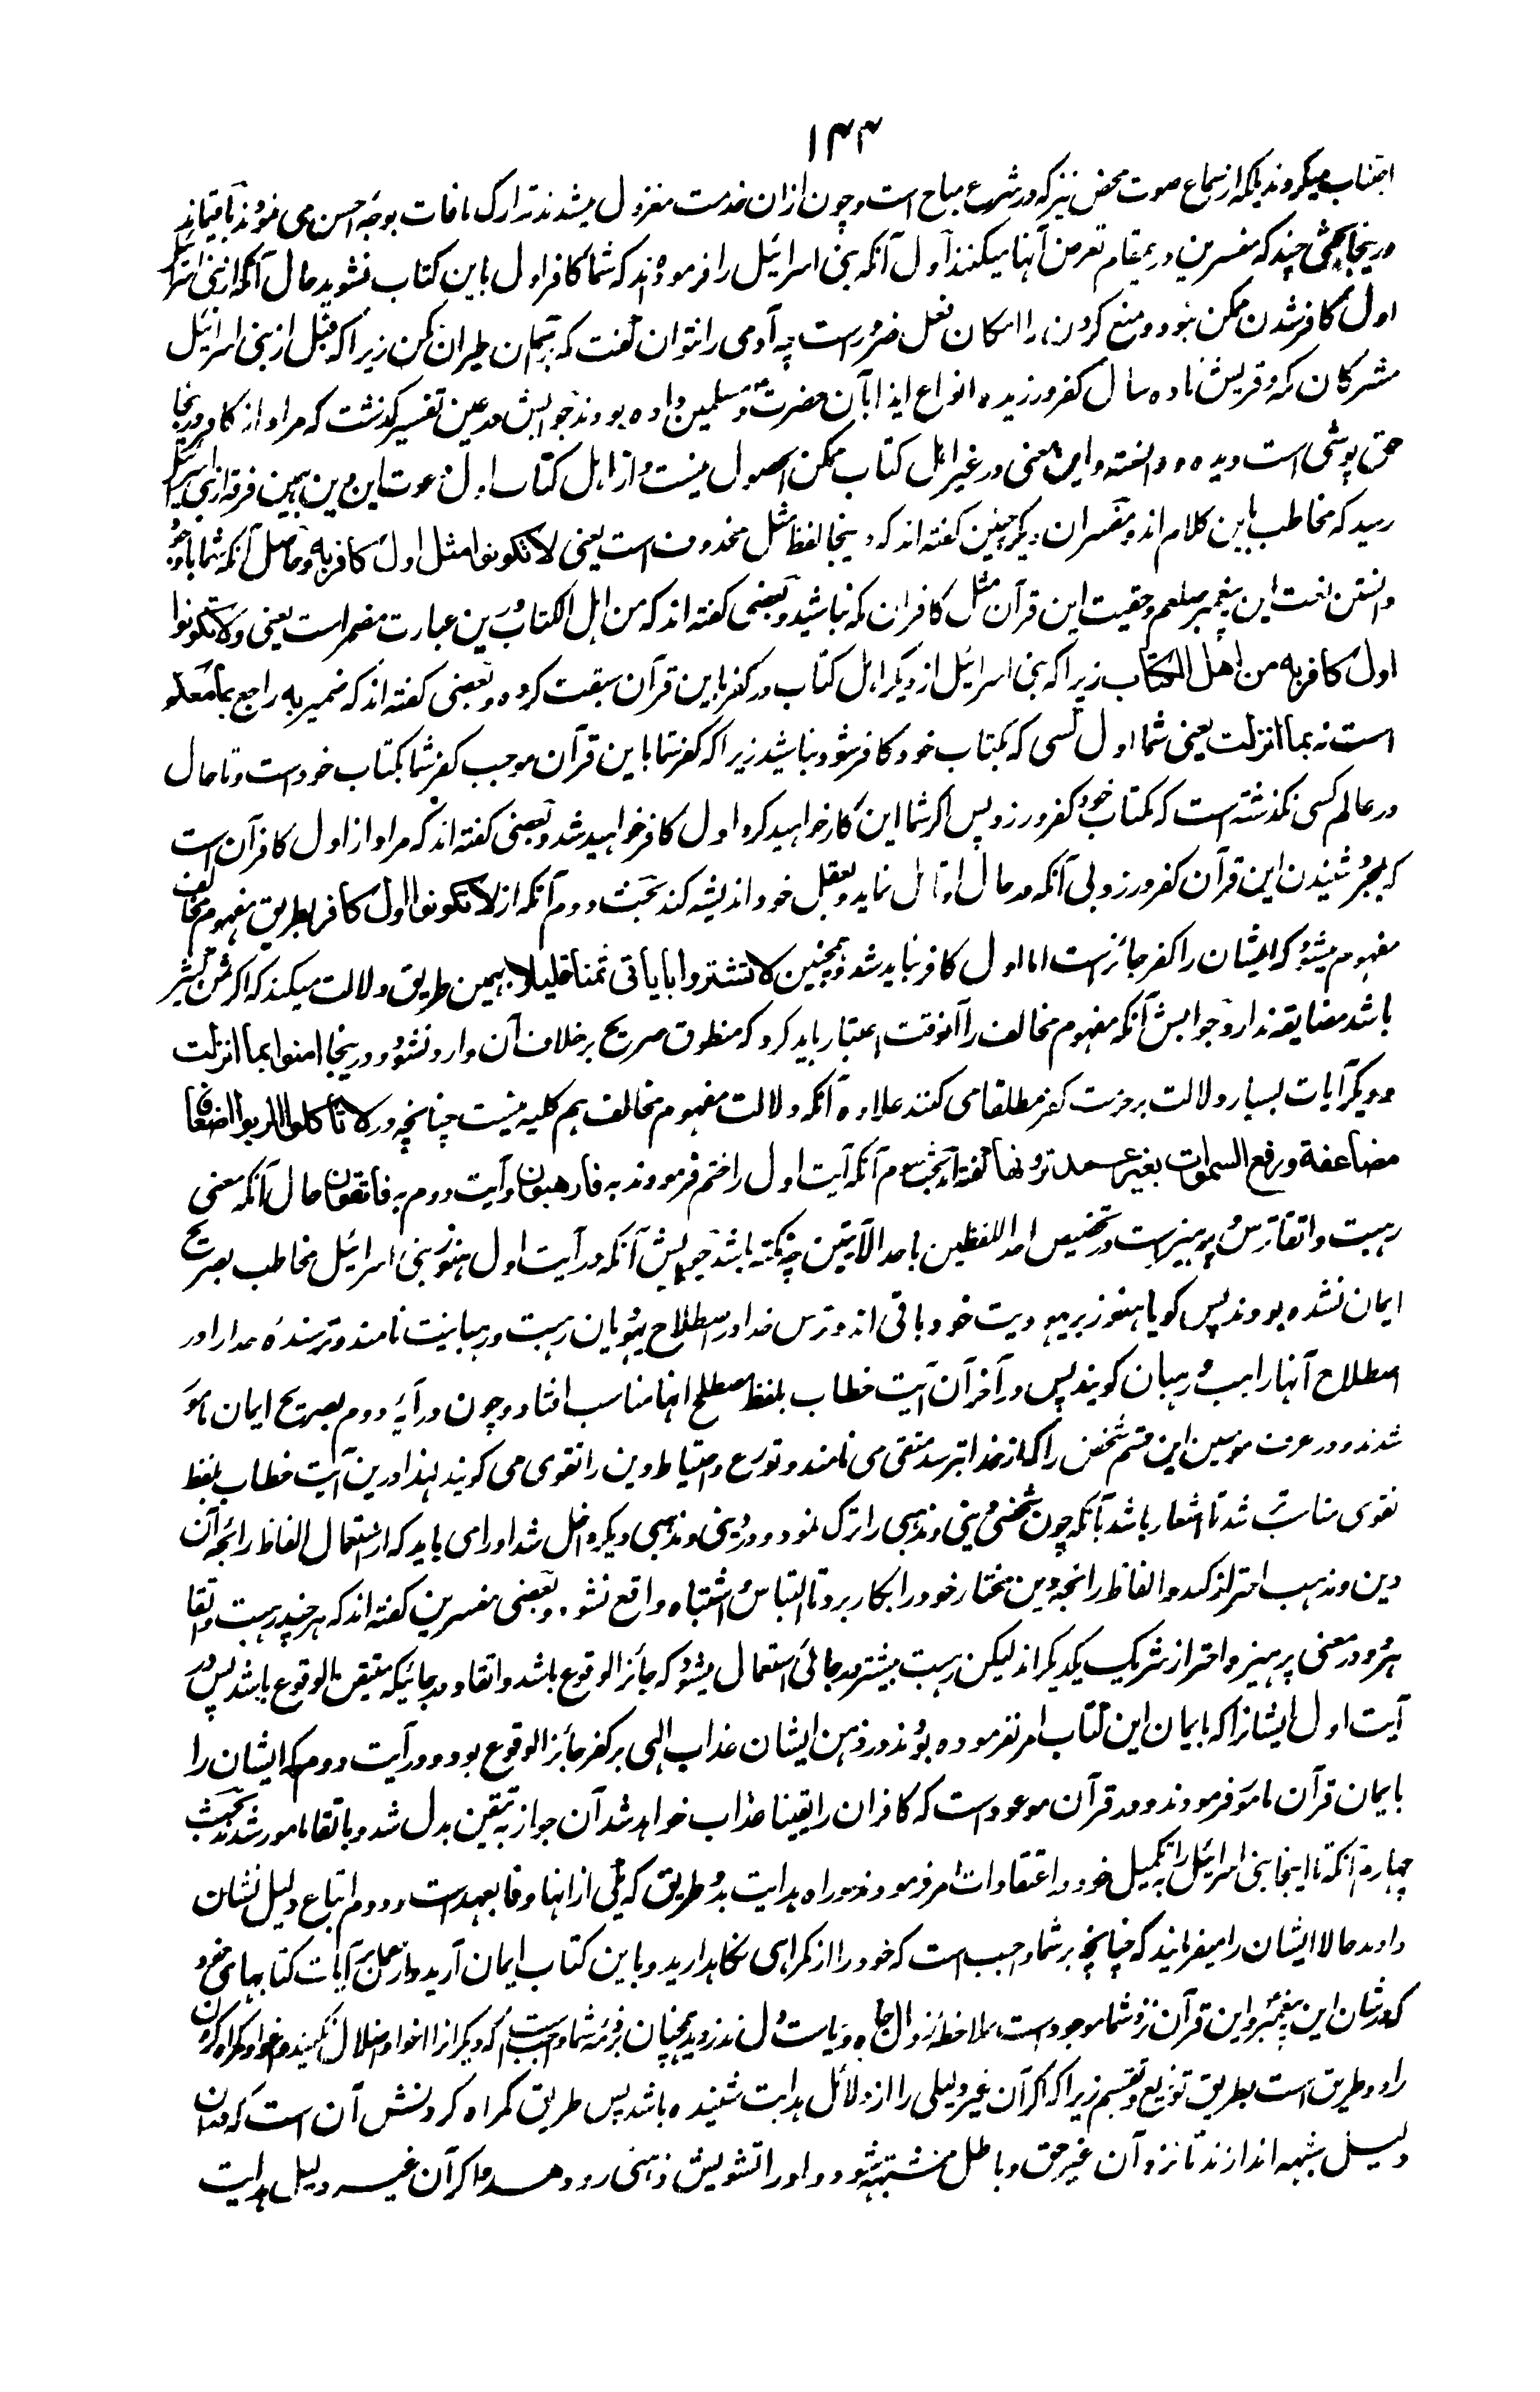 ۱۴۴
اجتناب میکردند بلکه از سماع صوت محض نیز که در شرع مباح است و چون از ان خدمت معزول میشدند تدارک مافات بوجه احسن می نمودند باقیماند
درینجا بحثی چند که مفسرین درینمقام تعرض آنها میکنند اول آنکه بنی اسرائیل را فرموده اند که شما کافر اول باین کتاب نشوید حال آنکه از بنی اسرائیل
اول کافر شدن ممکن نبود و منع کردن را امکان فعل ضرورست چه آدمی را نتوان گفت که بآسمان طیران مکن زیرا که قبل از بنی اسرائیل
مشرکان مکه و قریش تا ده سال کفر ورزیده انواع ایذا بآن حضرت و مسلمین داده بودند جوابش در عین تفسیر گذشت که مراد از کافر درینجا
حق پوشی است دیده و دانسته و این معنی در غیر اهل کتاب ممکن الحصول نیست و از اهل کتاب اول دعوت این دین بهمین فرقه از بنی اسرائیل
رسید که مخاطب باین کلام اند و مفسران دیگر چنین گفته اند که درینجا لفظ مثل محذوف است یعنی لا تکونوا مثل اول کافر به و حاصل آنکه شما باوجود
دانستن نعت این پیغمبر صلعم و حقیت این قرآن مثل کافران مکه نباشید و بعضی گفته اند که من اهل الکتاب درین عبارت مضمر است یعنی ولا تکونوا
اول کافر به من اهل الکتاب زیرا که بنی اسرائیل از دیگر اهل کتاب در کفر باین قرآن سبقت کرده و بعضی گفته اند که ضمیر به راجع بما معکم
است نه بما انزلت یعنی شما اول کسی که بکتاب خود کافر شود نباشید زیرا که کفر شما باین قرآن موجب کفر شما بکتاب خودست و تا حال
در عالم کسی نگذشته است که بکتاب خود کفر ورزد پس اگر شما این کار خواهید کرد اول کافر خواهید شد و بعضی گفته اند که مراد از اول کافر آن است
که بمجرد شنیدن این قرآن کفر ورزد بی آنکه در حال او تامل نماید و بعقل خود اندیشه کند بحث دوم آنکه از لا تکونوا اول کافر بطریق مفهوم مخالف
مفهوم میشود که ایشان را کفر جائز است اما اول کافر نباید شد و همچنین لا تشتروا بآیاتی ثمنا قلیلا بهمین طریق دلالت میکند که اگر ثمن کثیر
باشد مضایقه ندارد جوابش آنکه مفهوم مخالف را آنوقت اعتبار باید کرد که منطوق صریح بر خلاف آن وارد نشود و درینجا امنوا بما انزلت
و دیگر آیات بسیار دلالت بر حرمت کفر مطلقا می کنند علاوه آنکه دلالت مفهوم مخالف هم کلیه نیست چنانچه در لا تأکلوا الربوا اضعافا
مضاعفة و رفع السموات بغیر عمد ترونها گفته اند بحث سوم آنکه آیت اول را ختم فرمودند به فارهبون و آیت دوم به فاتقون حال آنکه معنی
رهبت و اتقا ترس و پرهیز است در تخصیص احد اللفظین باحد الآیتین چه نکته باشد جوابش آنکه در آیت اول هنوز بنی اسرائیل مخاطب بصریح
ایمان نشده بودند پس گویا هنوز بر یهودیت خود باقی اند و ترس خدا در اصطلاح یهودیان رهبت و رهبانیت نامند و ترسنده خدا را در
اصطلاح آنها راهب و رهبان گویند پس در آخر آن آیت خطاب بلفظ مصطلح انها مناسب افتاد و چون در آیهٔ دوم بصریح ایمان مامور
شدند و در عرف مومنین این قسم شخص را که از خدا بترسد متقی می نامند و تورع و احتیاط دین را تقوی می گویند لهذا درین آیت خطاب بلفظ
تقوی مناسب شد تا اشعار باشد بآنکه چون شخصی دینی و مذهبی را ترک نمود و در دینی و مذهبی دیگر داخل شد او را می باید که از استعمال الفاظ رائجه آن
دین و مذهب احتراز کند و الفاظ رائجه دین مختار خود را بکار برد تا التباس و اشتباه واقع نشود و بعضی مفسرین گفته اند که هر چند رهبت و اتقا
هر دو در معنی پرهیز و احتراز شریک یکدیگر اند لیکن رهبت بیشتر در جائی استعمال میشود که جائز الوقوع باشد و اتقا در جائیکه متیقن الوقوع باشد پس در
آیت اول ایشانرا که بایمان این کتاب امر نفرموده بودند در ذهن ایشان عذاب الهی بر کفر جائز الوقوع بود و در آیت دوم که ایشان را
بایمان قرآن مامور فرمودند و در قرآن موعود است که کافران را یقینا عذاب خواهد شد آن جواز به یقین بدل شد و باتقا مامور شدند بحث
چهارم آنکه تا اینجا بنی اسرائیل را به تکمیل خود در اعتقادات امر فرمودند و راه هدایت بدو طریق که یکی از انها وفا بعهد است و دوم اتباع دلیل نشان
دادند حالا ایشان را میفرمایند که چنانچه بر شما واجب است که خود را از گمراهی نگاهدارید و باین کتاب ایمان آرید و از آیات کتابهای خود
که در شان این پیغمبر و این قرآن نزد شما موجود است بملاحظه زوال جاه و ریاست دل ندزدید همچنان بر ذمه شما واجب است که دیگرانرا اغوا و اضلال نکنید و اغوا و گمراه کردن
را دو طریق است بطریق توزیع و تقسیم زیرا که اگر آن غیر دلیلی را از دلائل هدایت شنیده باشد پس طریق گمراه کردنش آن است که در ان
دلیل شبهه اندازند تا نزد آن غیر حق و باطل مشتبه شود و او را تشویش ذهنی رو دهد و اگر آن غیر دلیل هدایت